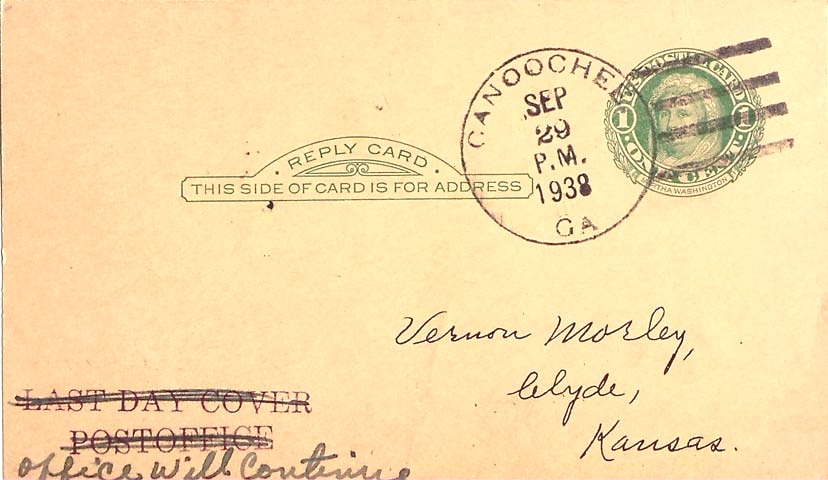 CANOOCHEE
SEP
29
P.M.
1938
GA
U.S. POSTAL CARD
1 1
ONE CENT
MARTHA WASHINGTON
· REPLY CARD ·
THIS SIDE OF CARD IS FOR ADDRESS
Vernon Mosley,
Clyde,
Kansas.
LAST DAY COVER
POSTOFFICE
office will Continue